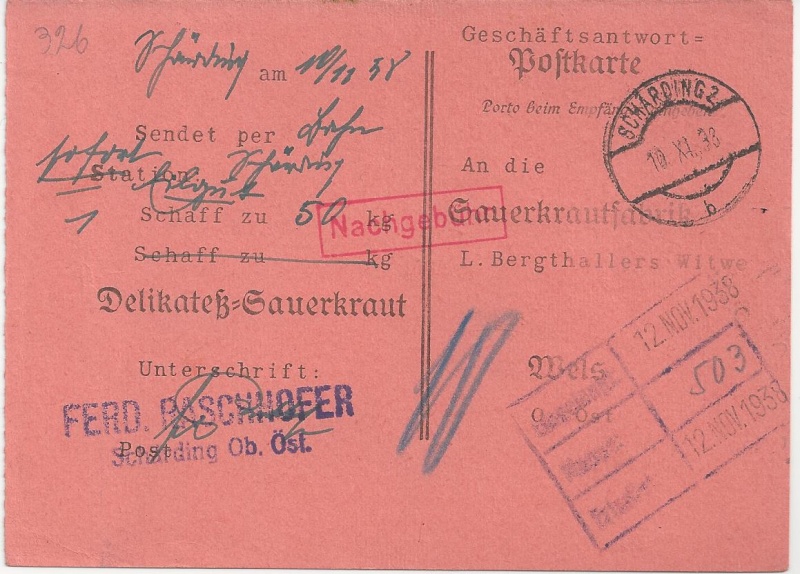 326
Schärding am 10/11 38
Sendet per Bahn
sofort Schärding
Station Eilgut
1 Schaff zu 50 kg
Schaff zu kg
Delikateß-Sauerkraut
Unterschrift:
FERD. PASCHHOFER
Post
Schärding Ob. Öst.
Nachgebühr
Geschäftsantwort=
Postkarte
Porto beim Empfänger
SCHÄRDING 2
10. XI. 38
b
An die
Sauerkrautfabrik
L. Bergthallers Witwe
Wels
12. NOV. 1938
503
12. NOV. 1938